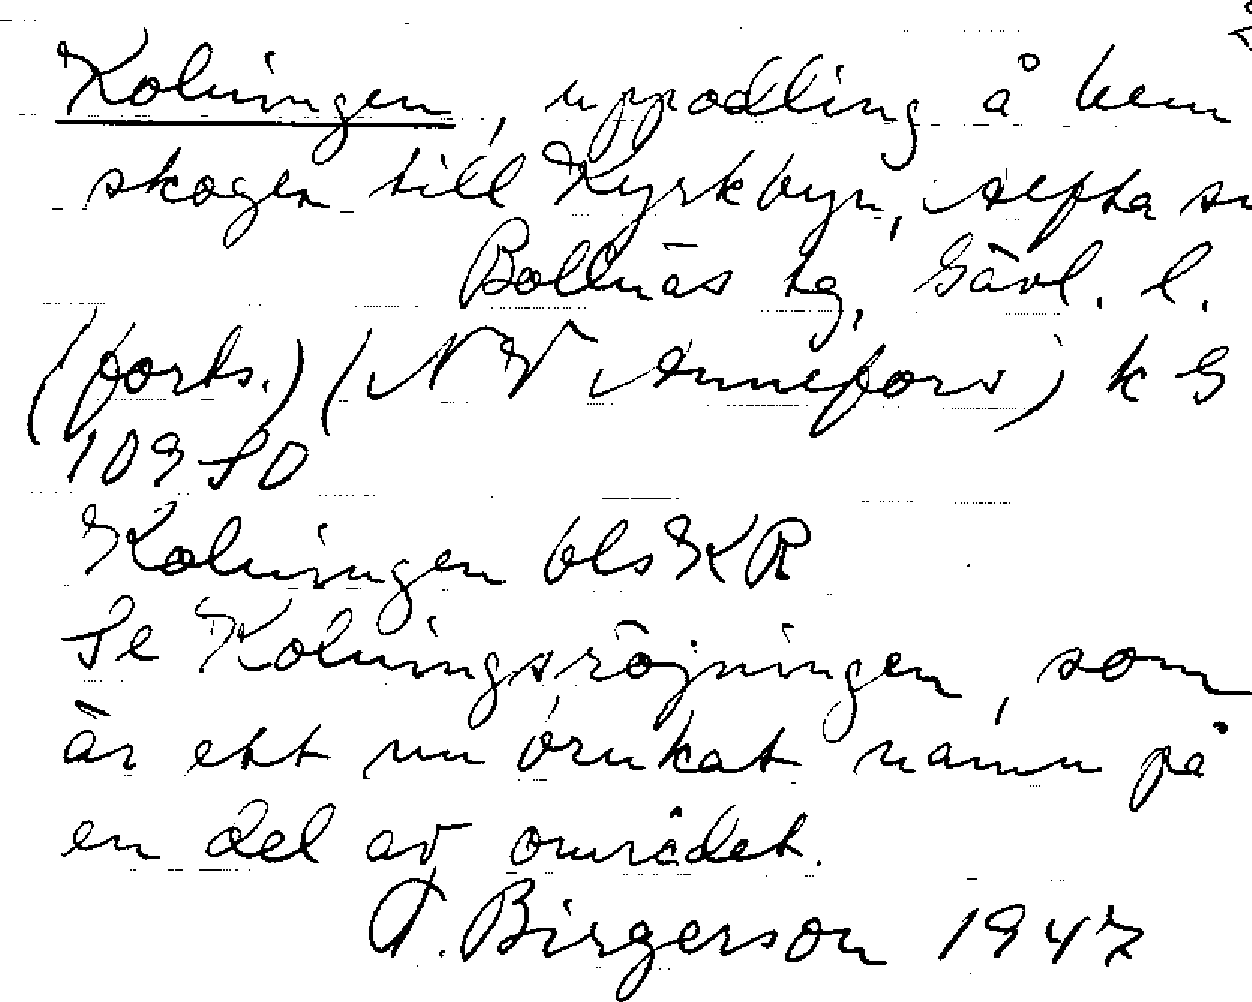 Kolningen, uppodling å hem
skogen till Kyrkbyn, Alfta sn
Bollnäs tg, Gävl. l.
(forts.) (NV Annefors) k G
109 SO
Kolningen bls KR
Se Kolningsröjningen, som
är ett nu brukat namn på
en del av området.
T. Birgerson 1947